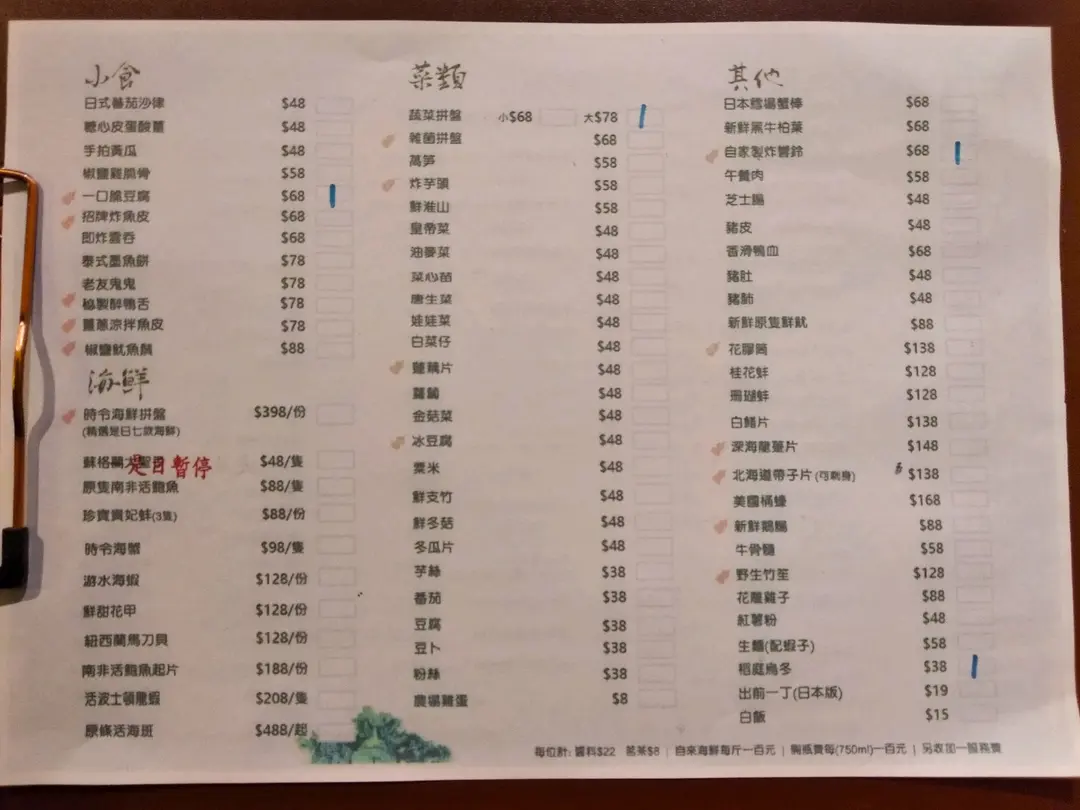 小食
日式蕃茄沙律 $48
糖心皮蛋酸薑 $48
手拍黃瓜 $48
椒鹽雞脆骨 $58
一口脆豆腐 $68
招牌炸魚皮 $68
即炸雲吞 $68
泰式墨魚餅 $78
老友鬼鬼 $78
秘製醉鴨舌 $78
薑蔥涼拌魚皮 $78
椒鹽魷魚鬚 $88
海鮮
時令海鮮拼盤 $398/份
(精選是日七款海鮮)
蘇格蘭 $48/隻
是日暫停
原隻南非活鮑魚 $88/隻
珍寶貴妃蚌(3隻) $88/份
時令海蟹 $98/隻
游水海蝦 $128/份
鮮甜花甲 $128/份
紐西蘭馬刀貝 $128/份
南非活鮑魚起片 $188/份
活波士頓龍蝦 $208/隻
原條活海斑 $488/起
菜類
蔬菜拼盤 小$68 大$78
雜菌拼盤 $68
萵笋 $58
炸芋頭 $58
鮮淮山 $58
皇帝菜 $48
油麥菜 $48
菜心苗 $48
唐生菜 $48
娃娃菜 $48
白菜仔 $48
蓮藕片 $48
蘿蔔 $48
金菇菜 $48
冰豆腐 $48
粟米 $48
鮮支竹 $48
鮮冬菇 $48
冬瓜片 $48
芋絲 $38
番茄 $38
豆腐 $38
豆卜 $38
粉絲 $38
農場雞蛋 $8
其他
日本鱈場蟹棒 $68
新鮮黑牛柏葉 $68
自家製炸響鈴 $68
午餐肉 $58
芝士腸 $48
豬皮 $48
香滑鴨血 $68
豬肚 $48
豬肺 $48
新鮮原隻鮮魷 $88
花膠筒 $138
桂花蚌 $128
珊瑚蚌 $128
白鱔片 $138
深海龍躉片 $148
北海道帶子片(可刺身) $138
美國桶蠔 $168
新鮮鵝腸 $88
牛骨髓 $58
野生竹笙 $128
花雕雞子 $88
紅薯粉 $48
生麵(配蝦子) $58
稻庭烏冬 $38
出前一丁(日本版) $19
白飯 $15
每位計: 醬料$22 茗茶$8 | 自來海鮮每斤一百元 | 開瓶費每(750ml)一百元 | 另收加一服務費